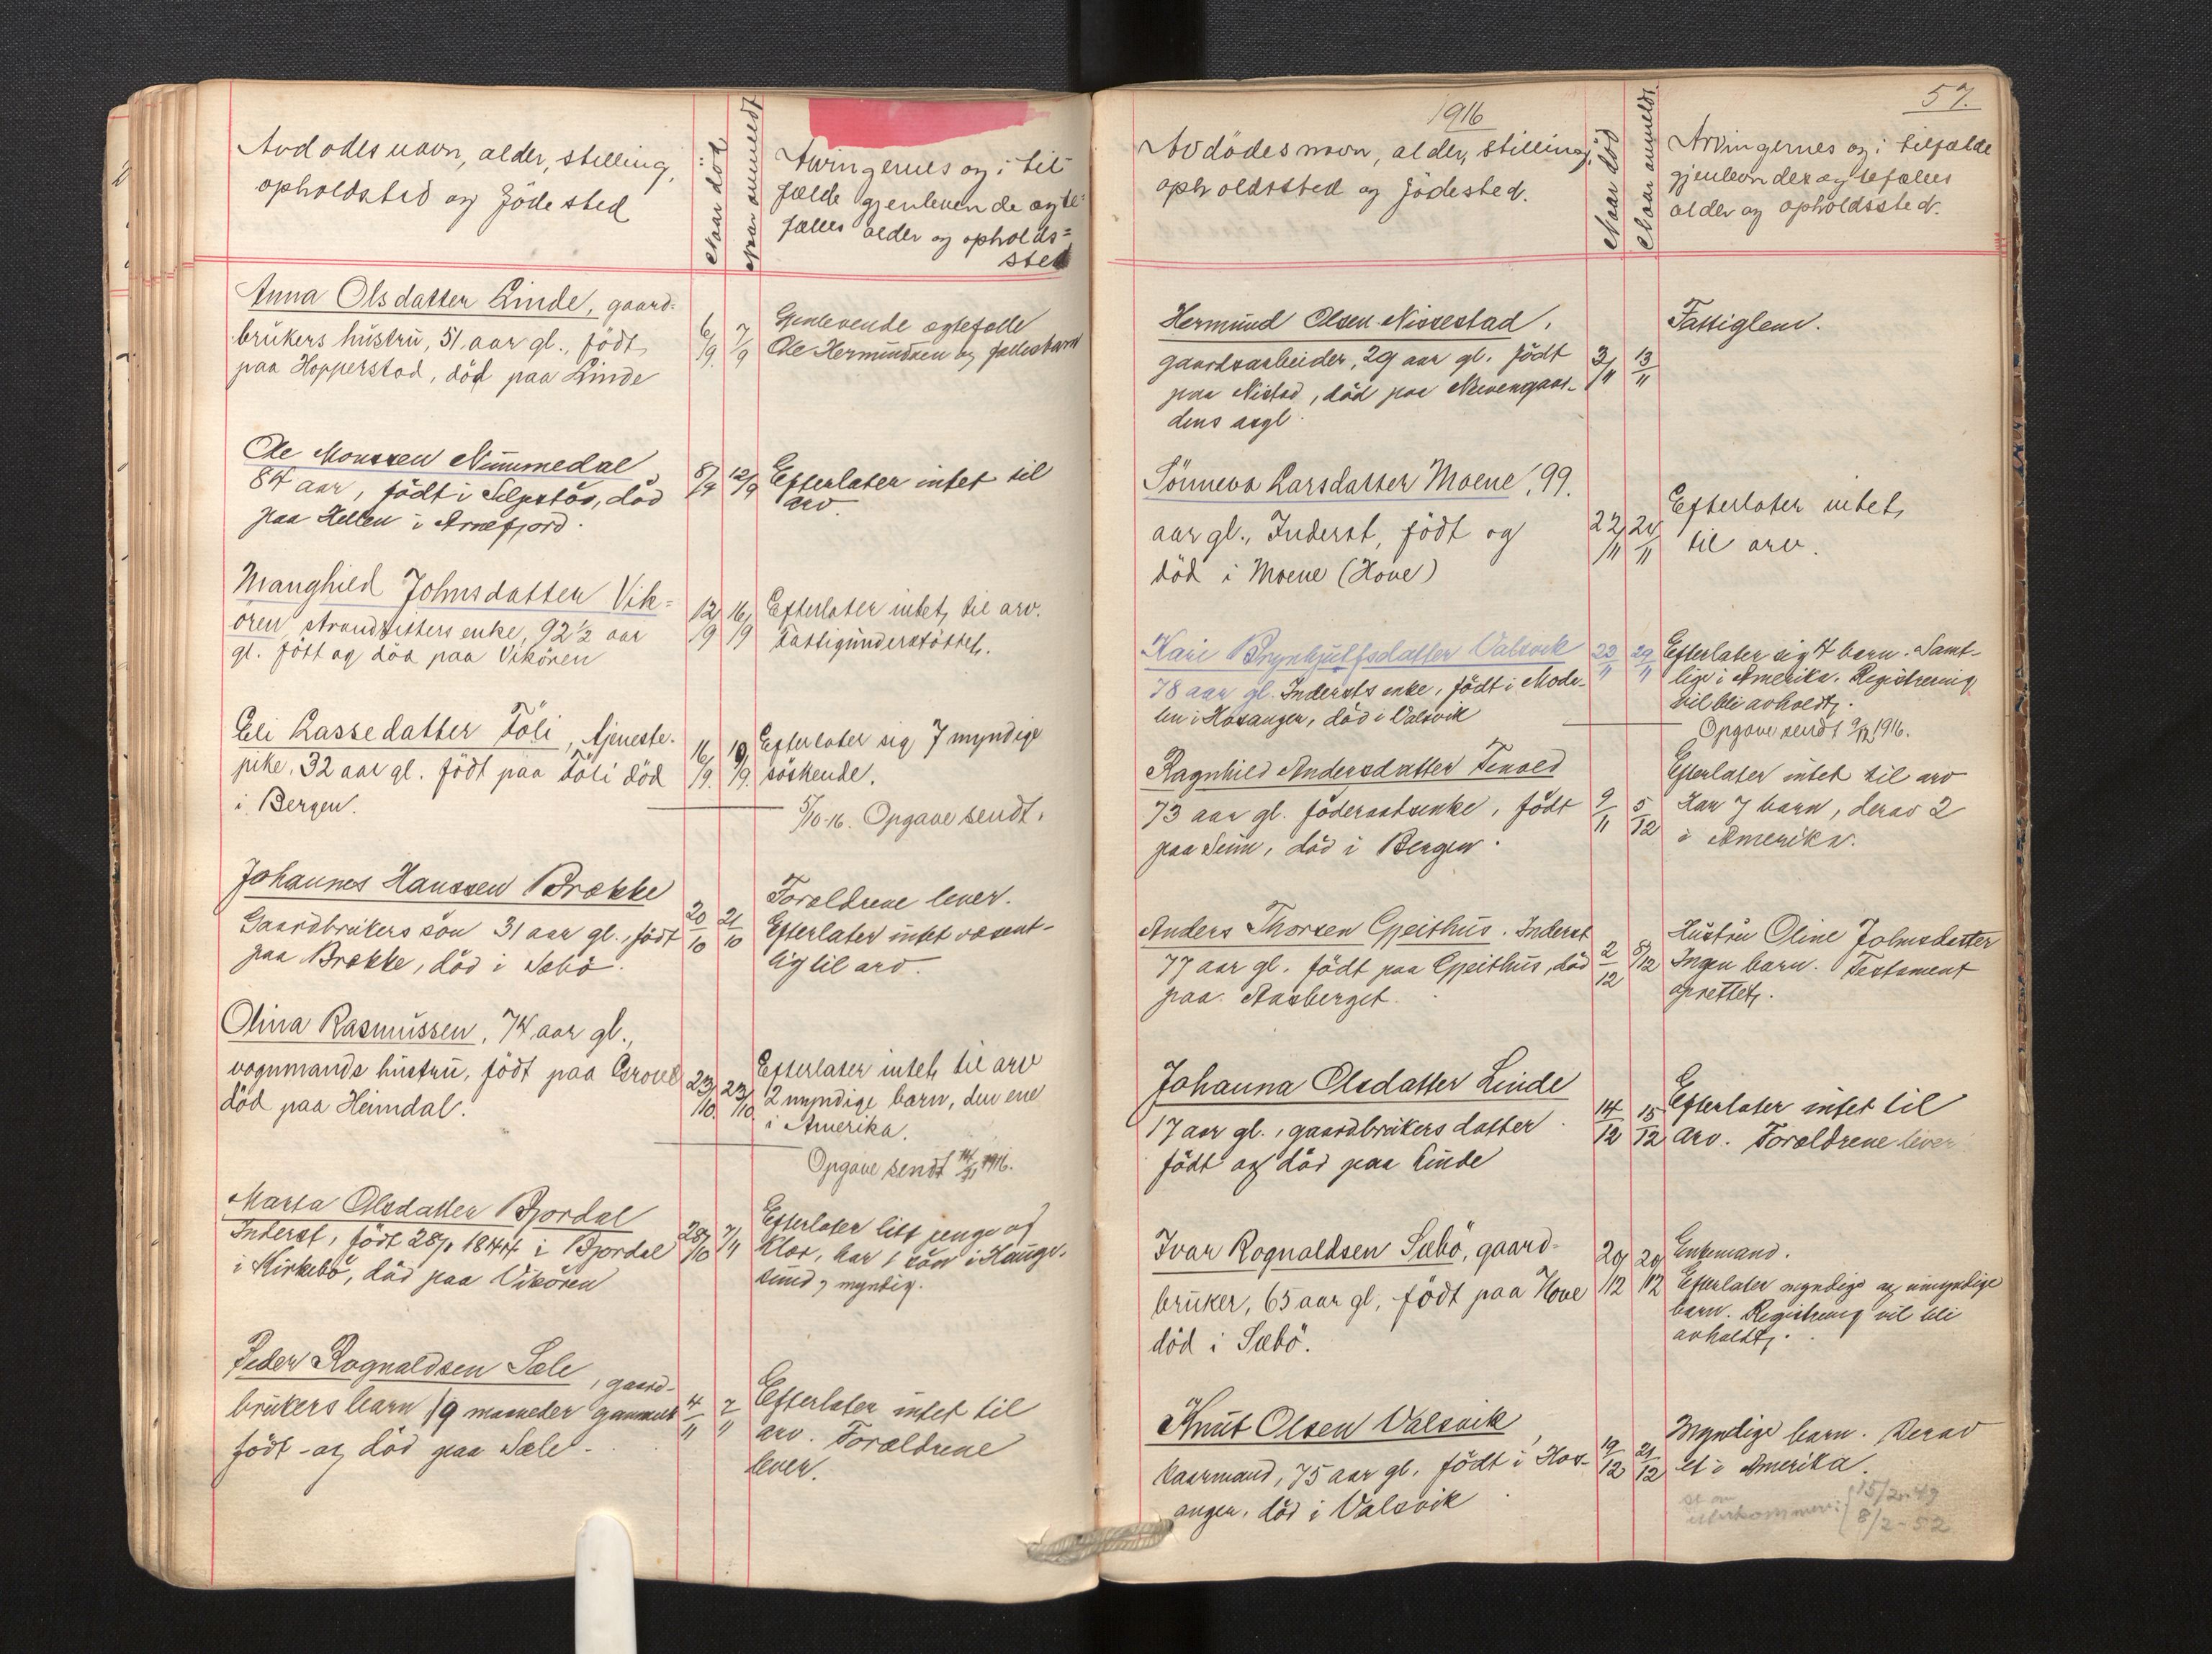 Avdödes navn, alder, stilling,
opholdsted og födested
Naar död
Naar anmeldt
Arvingernes og i til-
fælde gjenlevende ægte-
fælles alder og opholds=
sted
Anna Olsdatter Linde, gaard-
brukers hustru, 51 aar gl., födt
paa Hopperstad, död paa Linde
6/9.
7/9
Gjenlevende ægtefælle
Ole Hermundsen og fællesbarn
Ole Monssen Nummedal
84 aar, födt i Selpstös, död
paa Hellen i Arnefjord.
8/9
12/9
Efterlater intet til
arv.
Manghild Johnsdatter Vik=
ören, Strandsitters enke, 92 1/2 aar
gl. födt og död paa Vikören
12/9
16/9
Efterlater intet til arv.
Fattigunderstöttet.
Eli Lassedatter Föli, tjeneste-
pike, 32 aar gl. födt paa Föli död
i Bergen.
16/9.
19/9.
Efterlater sig 7 myndige
söskende.
5/10-16. Opgave sendt.
Johannes Hanssen Brække
Gaardbrukers sön 31 aar gl., födt
paa Brække, död i Sæbö.
20/10
21/10
Forældrene lever.
Efterlater intet væsent-
lig til arv.
Olina Rasmussen, 74 aar gl.,
vognmands hustru, födt paa Grove
död paa Heimdal.
23/10
23/10
Efterlater intet til arv
2 myndige barn, den ene
i Amerika.
Opgave sendt 14/11 1916.
Marta Olsdatter Bjordal
Inderst, födt 28/1 1844 i Bjordal
i Kirkebö, död paa Vikören
28/10
7/11
Efterlater litt penge og
klær, har 1 sön i Hauge-
sund, myndig.
Peder Rognaldsen Sæle, gaard-
brukers barn 19 maaneder gammelt
födt og död paa Sæle.
4/11
7/11
Efterlater intet til
arv. Forældrene
lever.
1916
57.
Avdödes navn, alder, stilling,
opholdssted og födested.
Naar död
Naar anmeldt.
Arvingernes og i tilfælde
gjenlevendes ægtefælles
alder og opholdssted.
Hermund Olsen Nissestad,
gaardsarbeider, 29 aar gl. födt
paa Nistad, död paa Neevengaar-
dens asyl.
3/11
13/11
Fattiglem.
Sönneva Larsdatter Moene, 99.
aar gl., Inderst, födt og
död i Moene (Hove)
22/11
24/11
Efterlater intet
til arv.
Kari Brynhjulfsdatter Valsvik
78 aar gl. Indersts enke, födt i Mode-
len i Hosanger, död i Valsvik
23/11
29/11
Efterlater sig 4 barn. Samt-
lige i Amerika. Registrering
vil bli avholdt.
Opgave sendt 9/12 1916.
Ragnhild Andersdatter Tenold
73 aar gl. föderaadsenke, födt
paa Seim, död i Bergen.
9/11
5/12
Efterlater intet til arv
Har 7 barn, derav 2
i Amerika.
Anders Thorsen Gjeithus. Inderst
77 aar gl. födt paa Gjeithus, död
paa Aasberget.
2/12
8/12
Hustru Oline Johnsdatter
Ingen barn. Testament
oprettet.
Johanna Olsdatter Linde
17 aar gl., gaardbrukers datter
födt og död paa Linde
14/12
15/12
Efterlater intet til
arv. Forældrene lever.
Ivar Rognaldsen Sæbö, gaard-
bruker, 65 aar gl, födt paa Hove
död i Sæbö.
20/12
20/12
Enkemand.
Efterlater myndige og umyndige
barn. Registrering vil bli
avholdt.
Knut Olsen Valsvik,
kaarmand, 75 aar gl. födt i Hos-
anger, död i Valsvik
19/12
21/12
Myndige barn. Derav
et i Amerika.
15/2-49
8/2-52